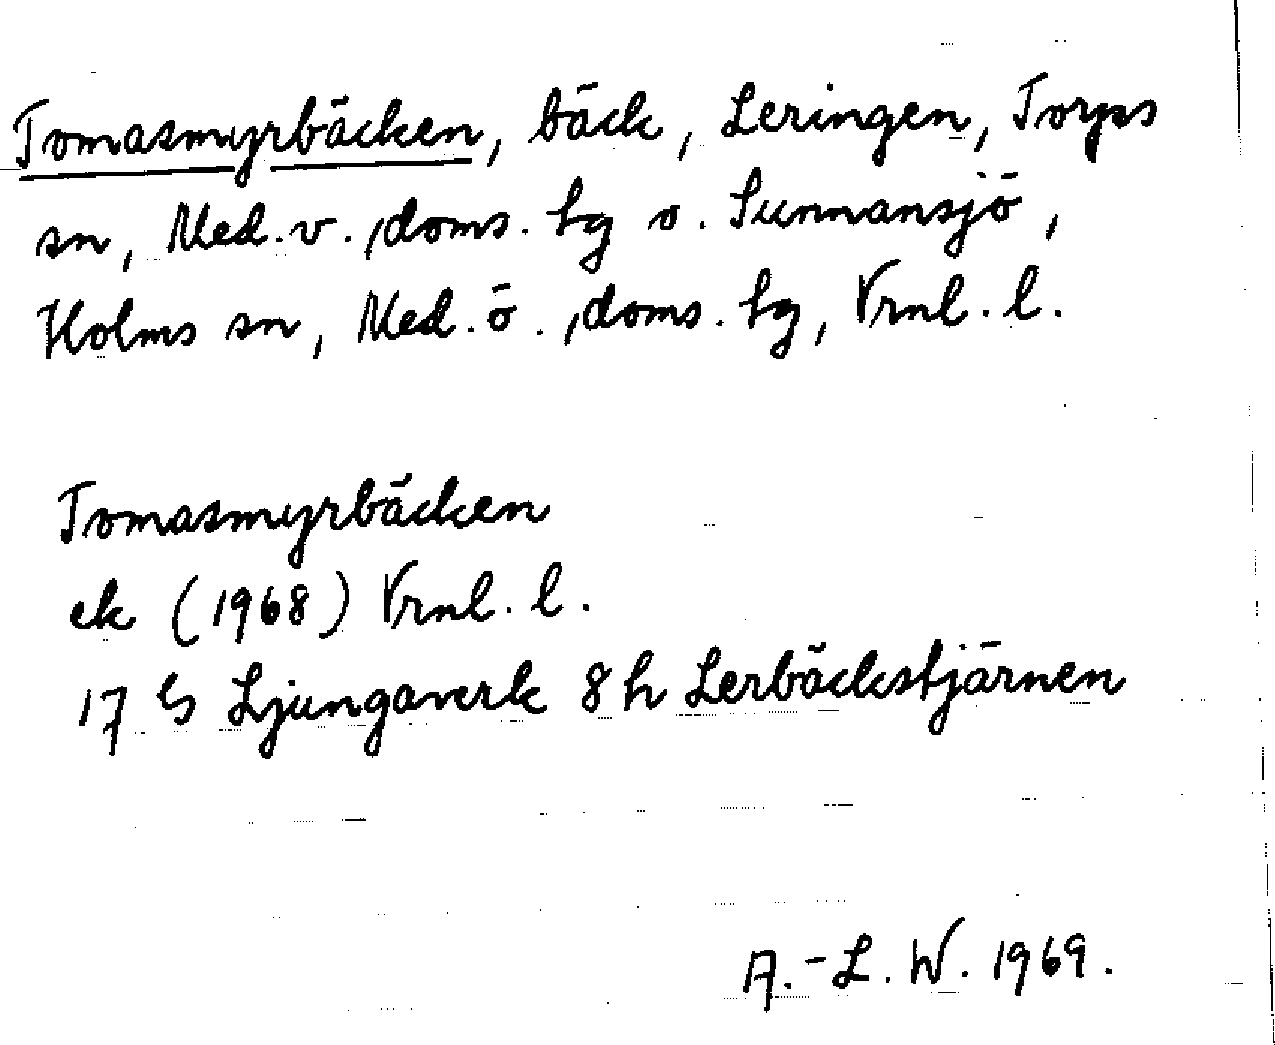 Tomasmyrbäcken, bäck, Leringen, Torps
sn, Med. v., doms. hg o. Sunnansjö,
Holms sn, Med. ö., doms. hg, Vrnl. l.
Tomasmyrbäcken
ek (1968) Vrnl. l.
17 G Ljungaverk 8 h Lerbäckstjärnen
A.-L. W. 1969.